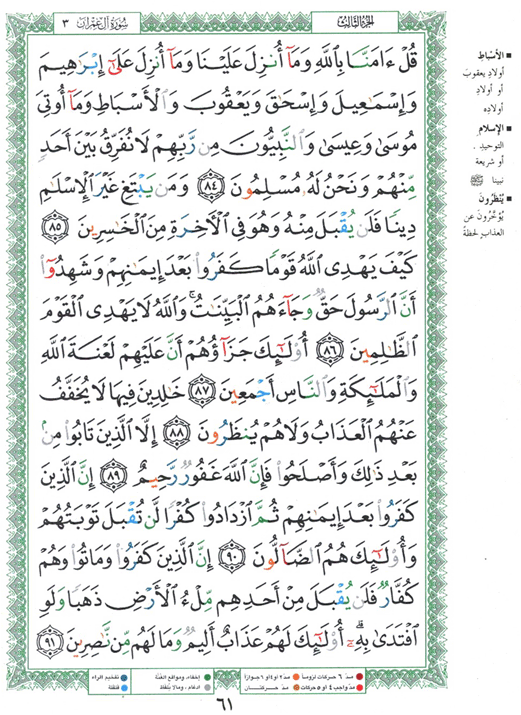 الجزء الثالث
سورة آل عمران ٣
قُلْ ءَامَنَّا بِٱللَّهِ وَمَآ أُنزِلَ عَلَيْنَا وَمَآ أُنزِلَ عَلَىٰٓ إِبْرَٰهِيمَ
وَإِسْمَٰعِيلَ وَإِسْحَٰقَ وَيَعْقُوبَ وَٱلْأَسْبَاطِ وَمَآ أُوتِىَ
مُوسَىٰ وَعِيسَىٰ وَٱلنَّبِيُّونَ مِن رَّبِّهِمْ لَا نُفَرِّقُ بَيْنَ أَحَدٍ
مِّنْهُمْ وَنَحْنُ لَهُۥ مُسْلِمُونَ ٨٤ وَمَن يَبْتَغِ غَيْرَ ٱلْإِسْلَٰمِ
دِينًا فَلَن يُقْبَلَ مِنْهُ وَهُوَ فِى ٱلْءَاخِرَةِ مِنَ ٱلْخَٰسِرِينَ ٨٥
كَيْفَ يَهْدِى ٱللَّهُ قَوْمًا كَفَرُوا۟ بَعْدَ إِيمَٰنِهِمْ وَشَهِدُوٓا۟
أَنَّ ٱلرَّسُولَ حَقٌّ وَجَآءَهُمُ ٱلْبَيِّنَٰتُ ۚ وَٱللَّهُ لَا يَهْدِى ٱلْقَوْمَ
ٱلظَّٰلِمِينَ ٨٦ أُو۟لَٰٓئِكَ جَزَآؤُهُمْ أَنَّ عَلَيْهِمْ لَعْنَةَ ٱللَّهِ
وَٱلْمَلَٰٓئِكَةِ وَٱلنَّاسِ أَجْمَعِينَ ٨٧ خَٰلِدِينَ فِيهَا لَا يُخَفَّفُ
عَنْهُمُ ٱلْعَذَابُ وَلَا هُمْ يُنظَرُونَ ٨٨ إِلَّا ٱلَّذِينَ تَابُوا۟ مِنۢ
بَعْدِ ذَٰلِكَ وَأَصْلَحُوا۟ فَإِنَّ ٱللَّهَ غَفُورٌ رَّحِيمٌ ٨٩ إِنَّ ٱلَّذِينَ
كَفَرُوا۟ بَعْدَ إِيمَٰنِهِمْ ثُمَّ ٱزْدَادُوا۟ كُفْرًا لَّن تُقْبَلَ تَوْبَتُهُمْ
وَأُو۟لَٰٓئِكَ هُمُ ٱلضَّآلُّونَ ٩٠ إِنَّ ٱلَّذِينَ كَفَرُوا۟ وَمَاتُوا۟ وَهُمْ
كُفَّارٌ فَلَن يُقْبَلَ مِنْ أَحَدِهِم مِّلْءُ ٱلْأَرْضِ ذَهَبًا وَلَوِ
ٱفْتَدَىٰ بِهِۦٓ ۗ أُو۟لَٰٓئِكَ لَهُمْ عَذَابٌ أَلِيمٌ وَمَا لَهُم مِّن نَّٰصِرِينَ ٩١
الأسباط
أولاد يعقوب
أو أولاد
أولاده
الإسلام
التوحيد.
أو شريعة
نبينا ﷺ
يُنْظَرُونَ
يُؤَخَّرُونَ عن
العذاب لحظة
مدّ ٦ حركات لزوماً مدّ ٢ أو ٤ أو ٦ جوازاً إخفاء، ومواقع الغُنَّة تفخيم الراء
مدّ واجب ٤ أو ٥ حركات مدّ حركتان إدغام، وما لا يُلفظ قلقلة
٦١